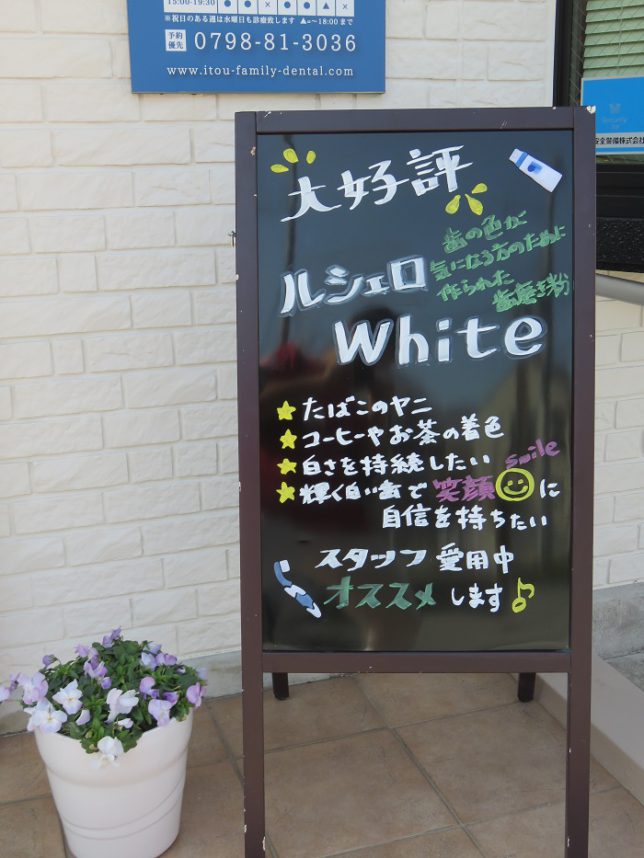 15:00-19:30 ● ● × ● ● ▲ ×
※祝日のある週は水曜日も診療致します ▲=~18:00まで
予約優先 0798-81-3036
www.itou-family-dental.com
大好評
歯の色が
気になる方のために
作られた
歯磨き粉
ルシェロ
White
★たばこのヤニ
★コーヒーやお茶の着色
★白さを持続したい
smile
★輝く白い歯で笑顔に
自信を持ちたい
スタッフ愛用中
オススメします♪
Security
by
安全警備株式会社